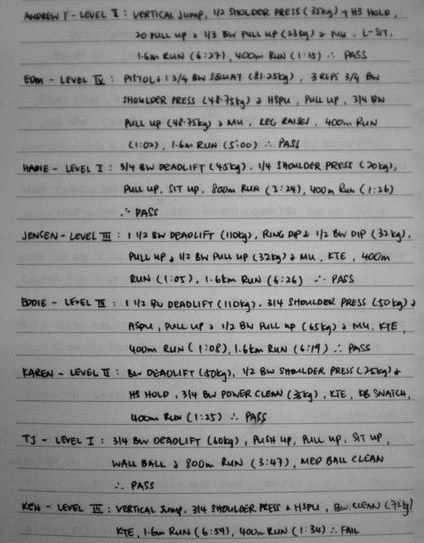 ANDREW T - LEVEL II : VERTICAL JUMP, 1/2 SHOLDER PRESS (35kg) & HS HOLD,
20 PULL UP & 1/3 BW PULL UP (23kg) & MU, L-SIT,
1.6m RUN (6:27), 400m RUN (1:15) ∴ PASS
EDM - LEVEL IV : PISTOL & 1 3/4 BW SQUAT (81.25kg), 3 REPS 3/4 BW
SHOULDER PRESS (48.75kg) & HSPU, PULL UP, 3/4 BW
PULL UP (48.75kg) & MU, LEG RAISES, 400m RUN
(1:02), 1.6m RUN (5:00) ∴ PASS
LEVEL I : 3/4 BW DEADLIFT (45kg), 1/4 SHOULDER PRESS (20kg),
PULL UP, SIT UP, 800m RUN (3:24), 400m RUN (1:26)
∴ PASS
JENSEN - LEVEL III : 1 1/2 BW DEADLIFT (110kg), RING DIP & 1/2 BW DIP (32kg),
PULL UP & 1/2 BW PULL UP (32kg) & MU, KTE, 400m
RUN (1:05), 1.6km RUN (6:26) ∴ PASS
EDDIE - LEVEL III : 1 1/2 BW DEADLIFT (110kg), 3/4 SHOULDER PRESS (50kg) &
HSPU, PULL UP & 1/2 BW PULL UP (65kg) & MU, KTE,
400m RUN (1:08), 1.6km RUN (6:19) ∴ PASS
KAREN - LEVEL II : BW DEADLIFT (50kg), 1/2 BW SHOULDER PRESS (25kg) &
HS HOLD, 3/4 BW POWER CLEAN (35kg), KTE, KB SNATCH,
400m RUN (1:25) ∴ PASS
TJ - LEVEL I : 3/4 BW DEADLIFT (60kg), PUSH UP, PULL UP, SIT UP,
WALL BALL & 800m RUN (3:47), MED BALL CLEAN
∴ PASS
KEN - LEVEL III : VERTICAL JUMP, 3/4 SHOULDER PRESS & HSPU, BW CLEAN (75kg)
KTE, 1.6m RUN (6:59), 400m RUN (1:34) ∴ FAIL